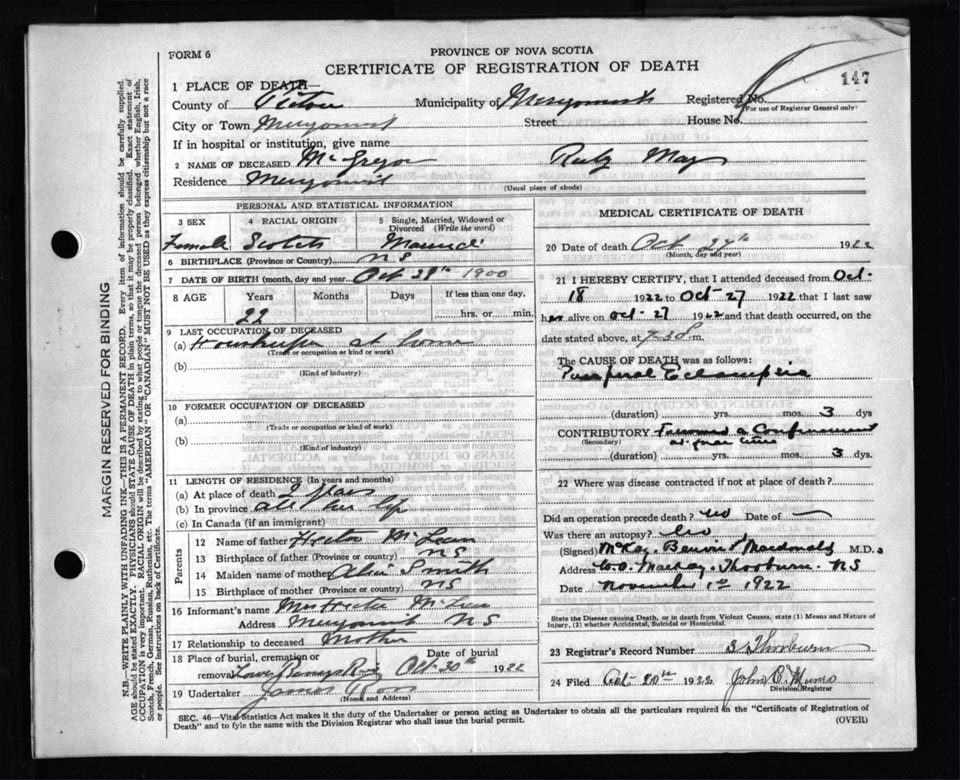 FORM 6
PROVINCE OF NOVA SCOTIA
CERTIFICATE OF REGISTRATION OF DEATH
147
1 PLACE OF DEATH—
County of Pictou Municipality of Merigomish Registered No.
(For use of Registrar General only)
City or Town Merigomish Street House No.
If in hospital or institution, give name
2 NAME OF DECEASED McGregor Ruby May
Residence Merigomish
(Usual place of abode)
PERSONAL AND STATISTICAL INFORMATION
3 SEX 4 RACIAL ORIGIN 5 Single, Married, Widowed or Divorced (Write the word)
Female Scotch Married
6 BIRTHPLACE (Province or Country) N S
7 DATE OF BIRTH (month, day and year) Oct 28th 1900
8 AGE Years Months Days If less than one day,
22 hrs. or min.
9 LAST OCCUPATION OF DECEASED
(a) Housekeeper at home
(Trade or occupation or kind or work)
(b)
(Kind of industry)
10 FORMER OCCUPATION OF DECEASED
(a)
(Trade or occupation or kind of work)
(b)
(Kind of industry)
11 LENGTH OF RESIDENCE (In years and months)
(a) At place of death 2 years
(b) In province all her life
(c) In Canada (if an immigrant)
Parents
12 Name of father Hector McLean
13 Birthplace of father (Province or country) N S
14 Maiden name of mother Smith
15 Birthplace of mother (Province or country) N S
16 Informant's name Mrs Hector McLean
Address Merigomish N S
17 Relationship to deceased Mother
18 Place of burial, cremation or removal Date of burial
Oct 30th 1922
19 Undertaker James
(Name and Address)
MEDICAL CERTIFICATE OF DEATH
20 Date of death Oct 27th 1922
(Month, day and year)
21 I HEREBY CERTIFY, that I attended deceased from Oct-
18 1922 to Oct-27 1922 that I last saw
her alive on Oct-27 1922 and that death occurred, on
date stated above, at m.
The CAUSE OF DEATH was as follows:
Puerperal Eclampsia
(duration) yrs. mos. 3 dys
CONTRIBUTORY a Confinement
(Secondary)
(duration) yrs. mos. 3 dys.
22 Where was disease contracted if not at place of death?
Did an operation precede death? no Date of —
Was there an autopsy? no
(Signed) McKay, Macdonald M.D.
Address MacKay. Thorburn. N S
Date November 1st 1922
State the Disease causing Death, or in death from Violent Causes, state (1) Means and Nature of Injury, (2) whether Accidental, Suicidal or Homicidal.
23 Registrar's Record Number Thorburn
24 Filed 1922 John Munro
Division Registrar
SEC. 46—Vital Statistics Act makes it the duty of the Undertaker or person acting as Undertaker to obtain all the particulars required in the "Certificate of Registration of
Death" and to fyle the same with the Division Registrar who shall issue the burial permit. (OVER)
MARGIN RESERVED FOR BINDING
N.B.—WRITE PLAINLY WITH UNFADING INK—THIS IS A PERMANENT RECORD. Every item of information should be carefully supplied.
AGE should be stated EXACTLY. PHYSICIANS should STATE CAUSE OF DEATH in plain terms, so that it may be properly classified. Exact statement of
OCCUPATION is very important. RACIAL ORIGIN will be described by stating to what people or tongue the deceased person belonged whether English, Irish,
Scotch, French, German, Russian, Ruthenian, etc. The terms "AMERICAN" OR "CANADIAN" MUST NOT BE USED as they express citizenship but not a race
or people. See instructions on back of Certificate.